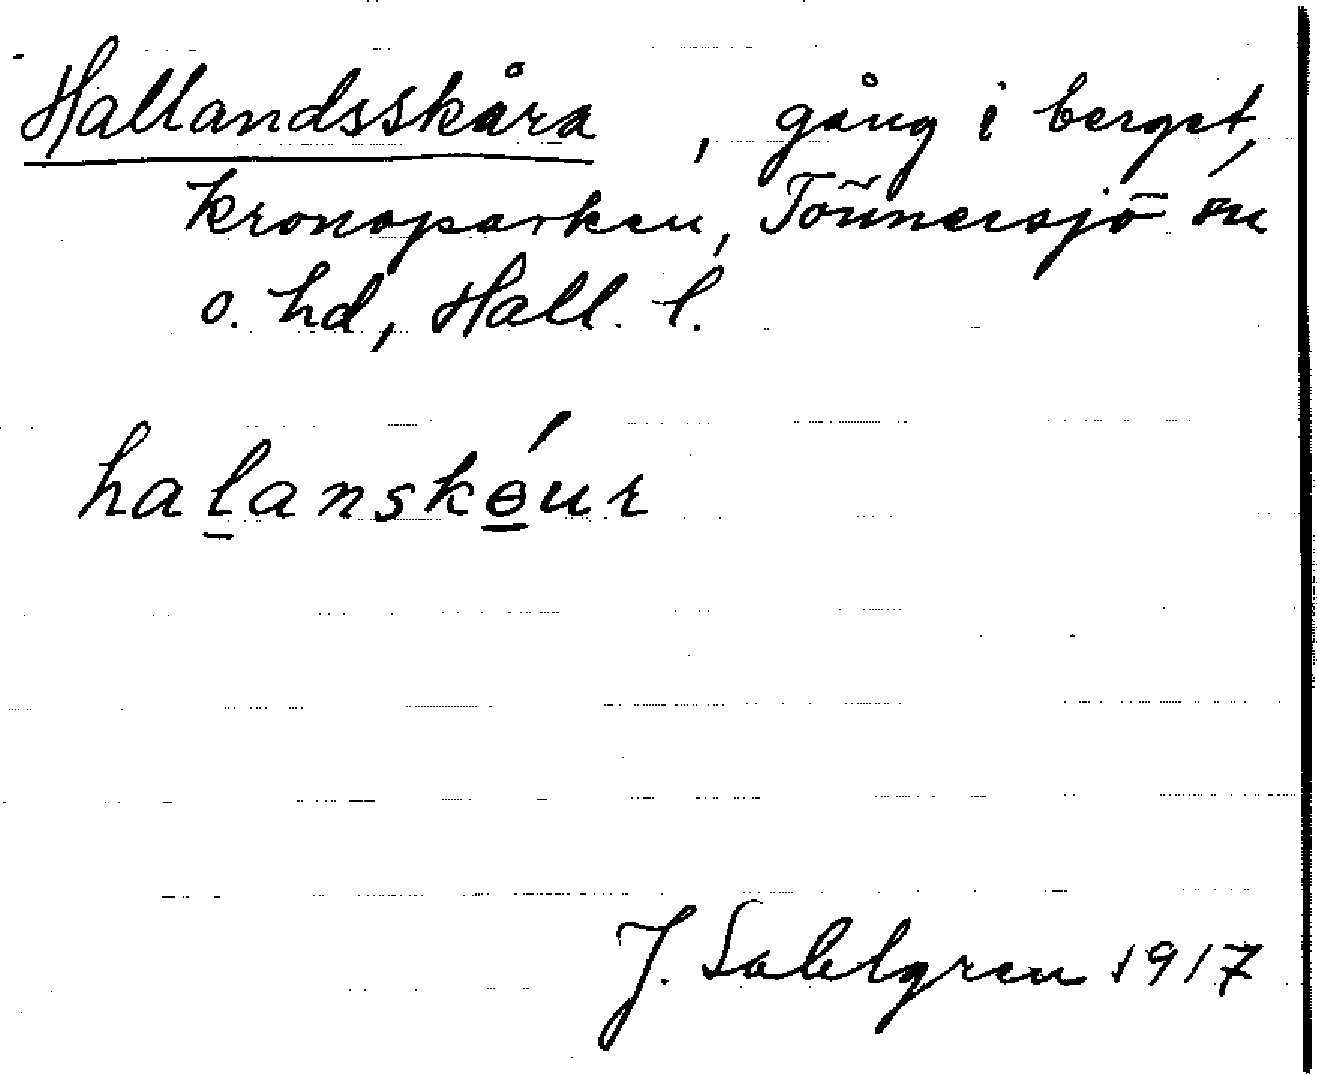 Hallandsskåra , gång i berget,
kronoparken, Tönnersjö sn
o. hd, Hall. l.
halanskɵ́ur
J. Sahlgren 1917